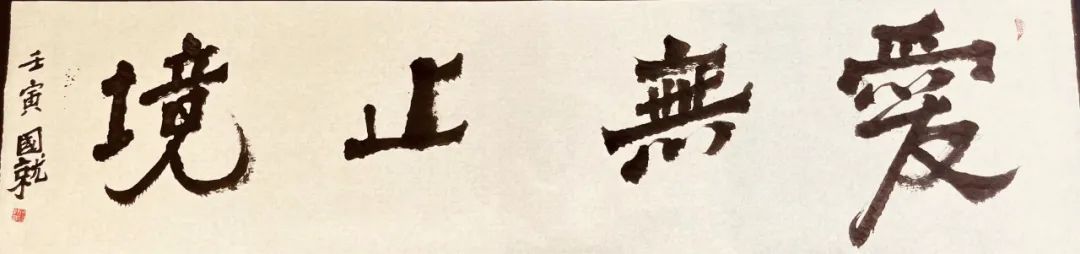 愛無止境
壬寅國就